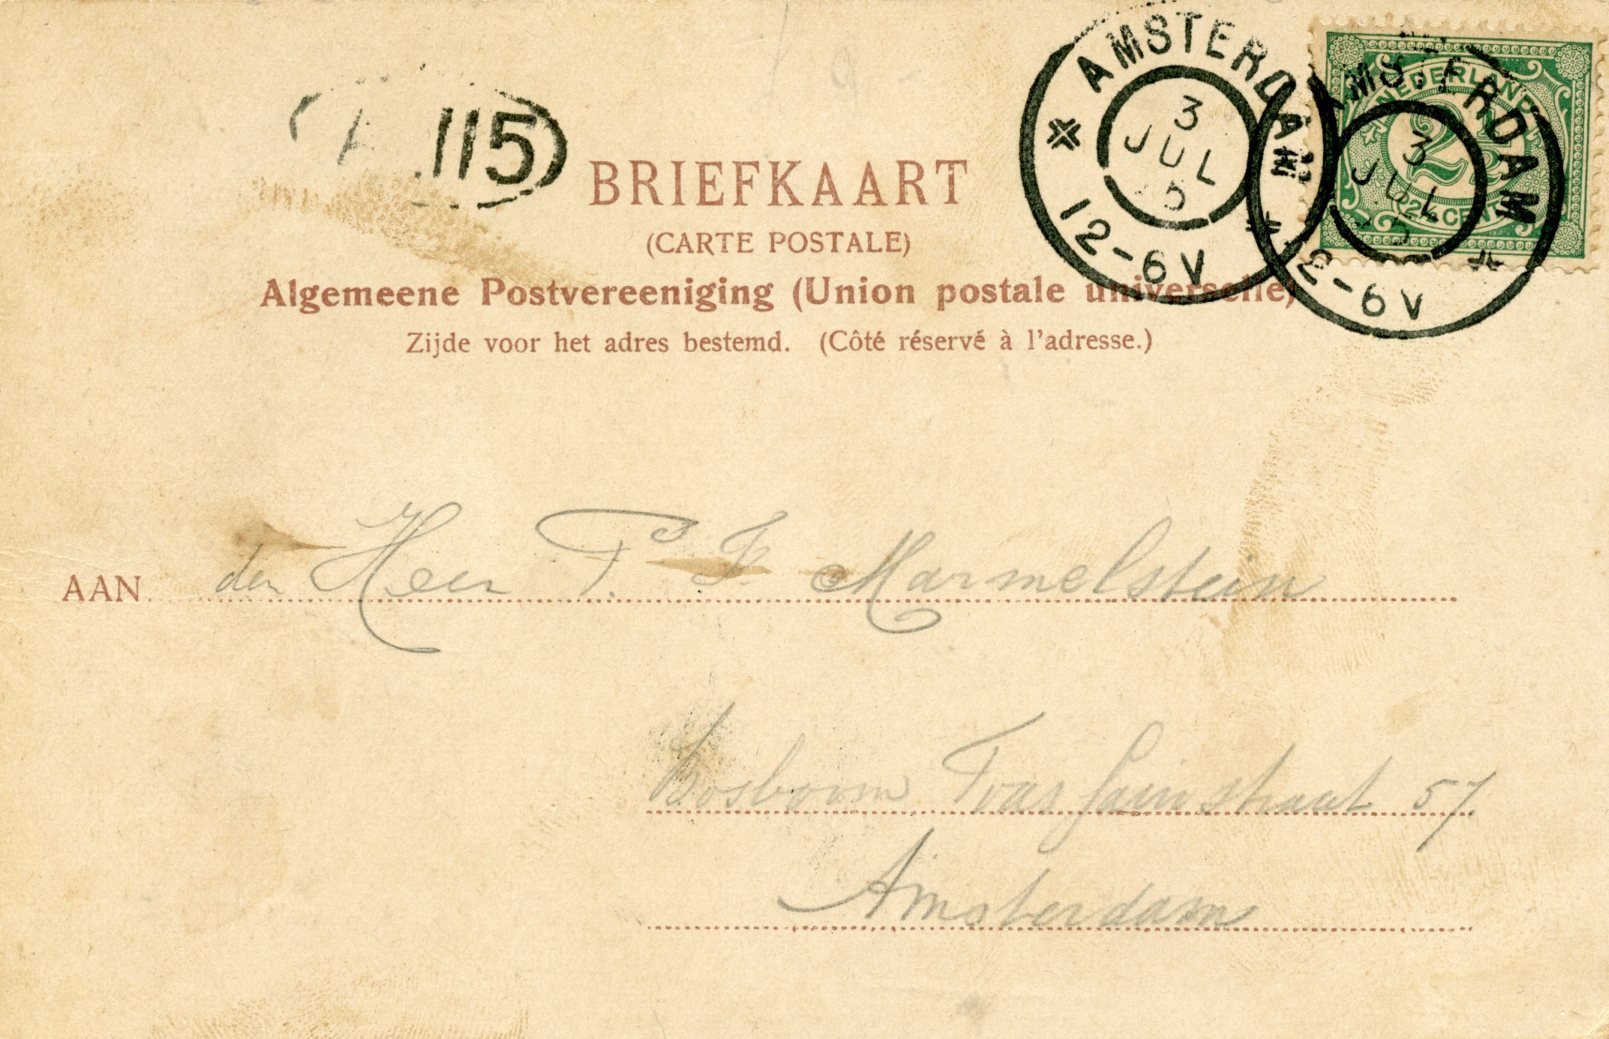 115
BRIEFKAART
(CARTE POSTALE)
Algemeene Postvereeniging (Union postale universelle)
Zijde voor het adres bestemd. (Côté réservé à l'adresse.)
AMSTERDAM
3
JUL
5
12-6V
AMSTERDAM
3
JUL
5
12-6V
NEDERLAND
2½
2½ CENT
AAN den Heer P. F. Marmelstein
Bosboom Toussaintstraat 57
Amsterdam